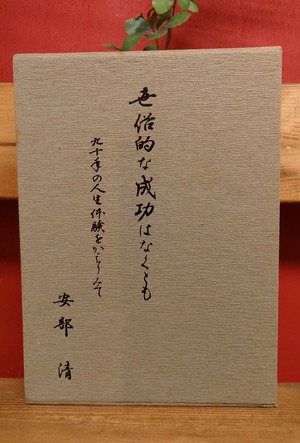 世俗的な成功はなくとも
九十年の人生体験をかえりみて
安部 清